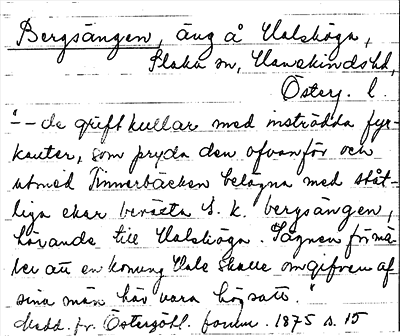 Bergsängen, äng å Valsköga,
Slaka sn, Hanekindshd,
Österg. l.
"--de grift kullar med inströdda fyr-
kanter, som pryda den ofvanför och
utmed Tinnerbäcken belägna med ståt-
liga ekar beväxta s. k. bergsängen,
hörande till Valsköga. Sägnen förmä-
ler att en konung Vale skulle omgifven af
sina män här vara högsatt."
Medd. fr. Östergötl. fornm. 1875 s. 15